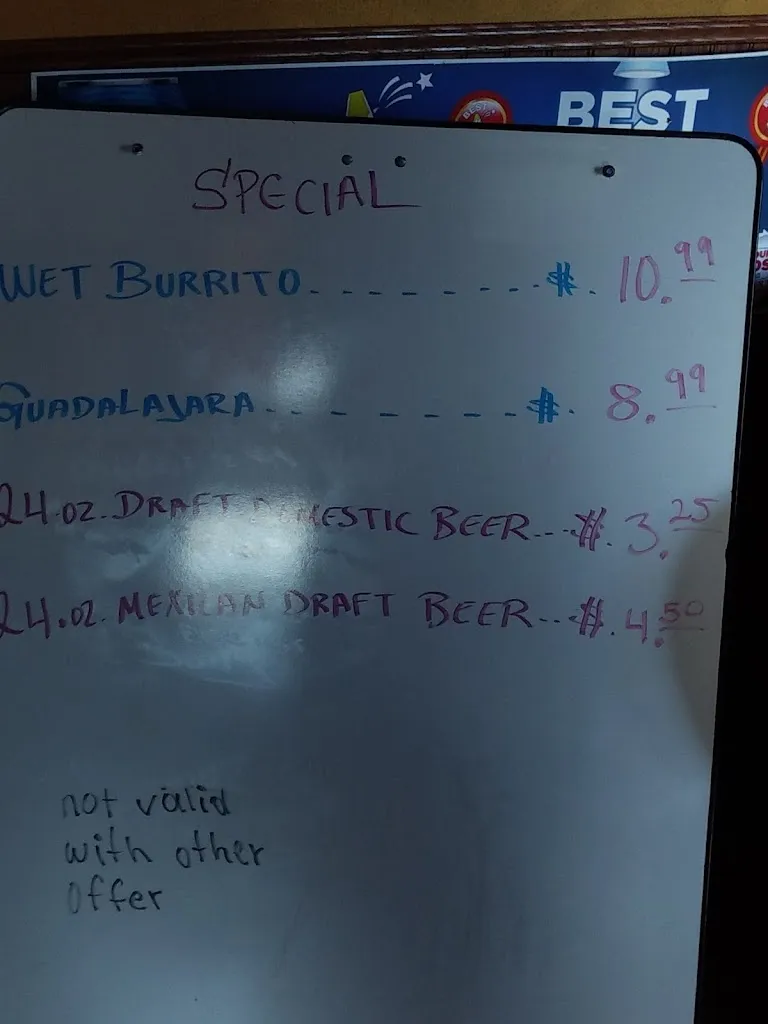 BEST
SPECIAL
WET BURRITO. - - - - - - - - $. 10.99
GUADALAJARA. - - - - - - - $. 8.99
24.oz. DRAFT DOMESTIC BEER...$. 3.25
24.oz. MEXICAN DRAFT BEER...$. 4.50
not valid
with other
offer